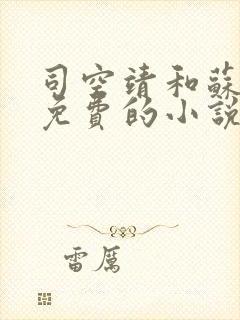 司空靖和蘇
免費的小說
雷厲